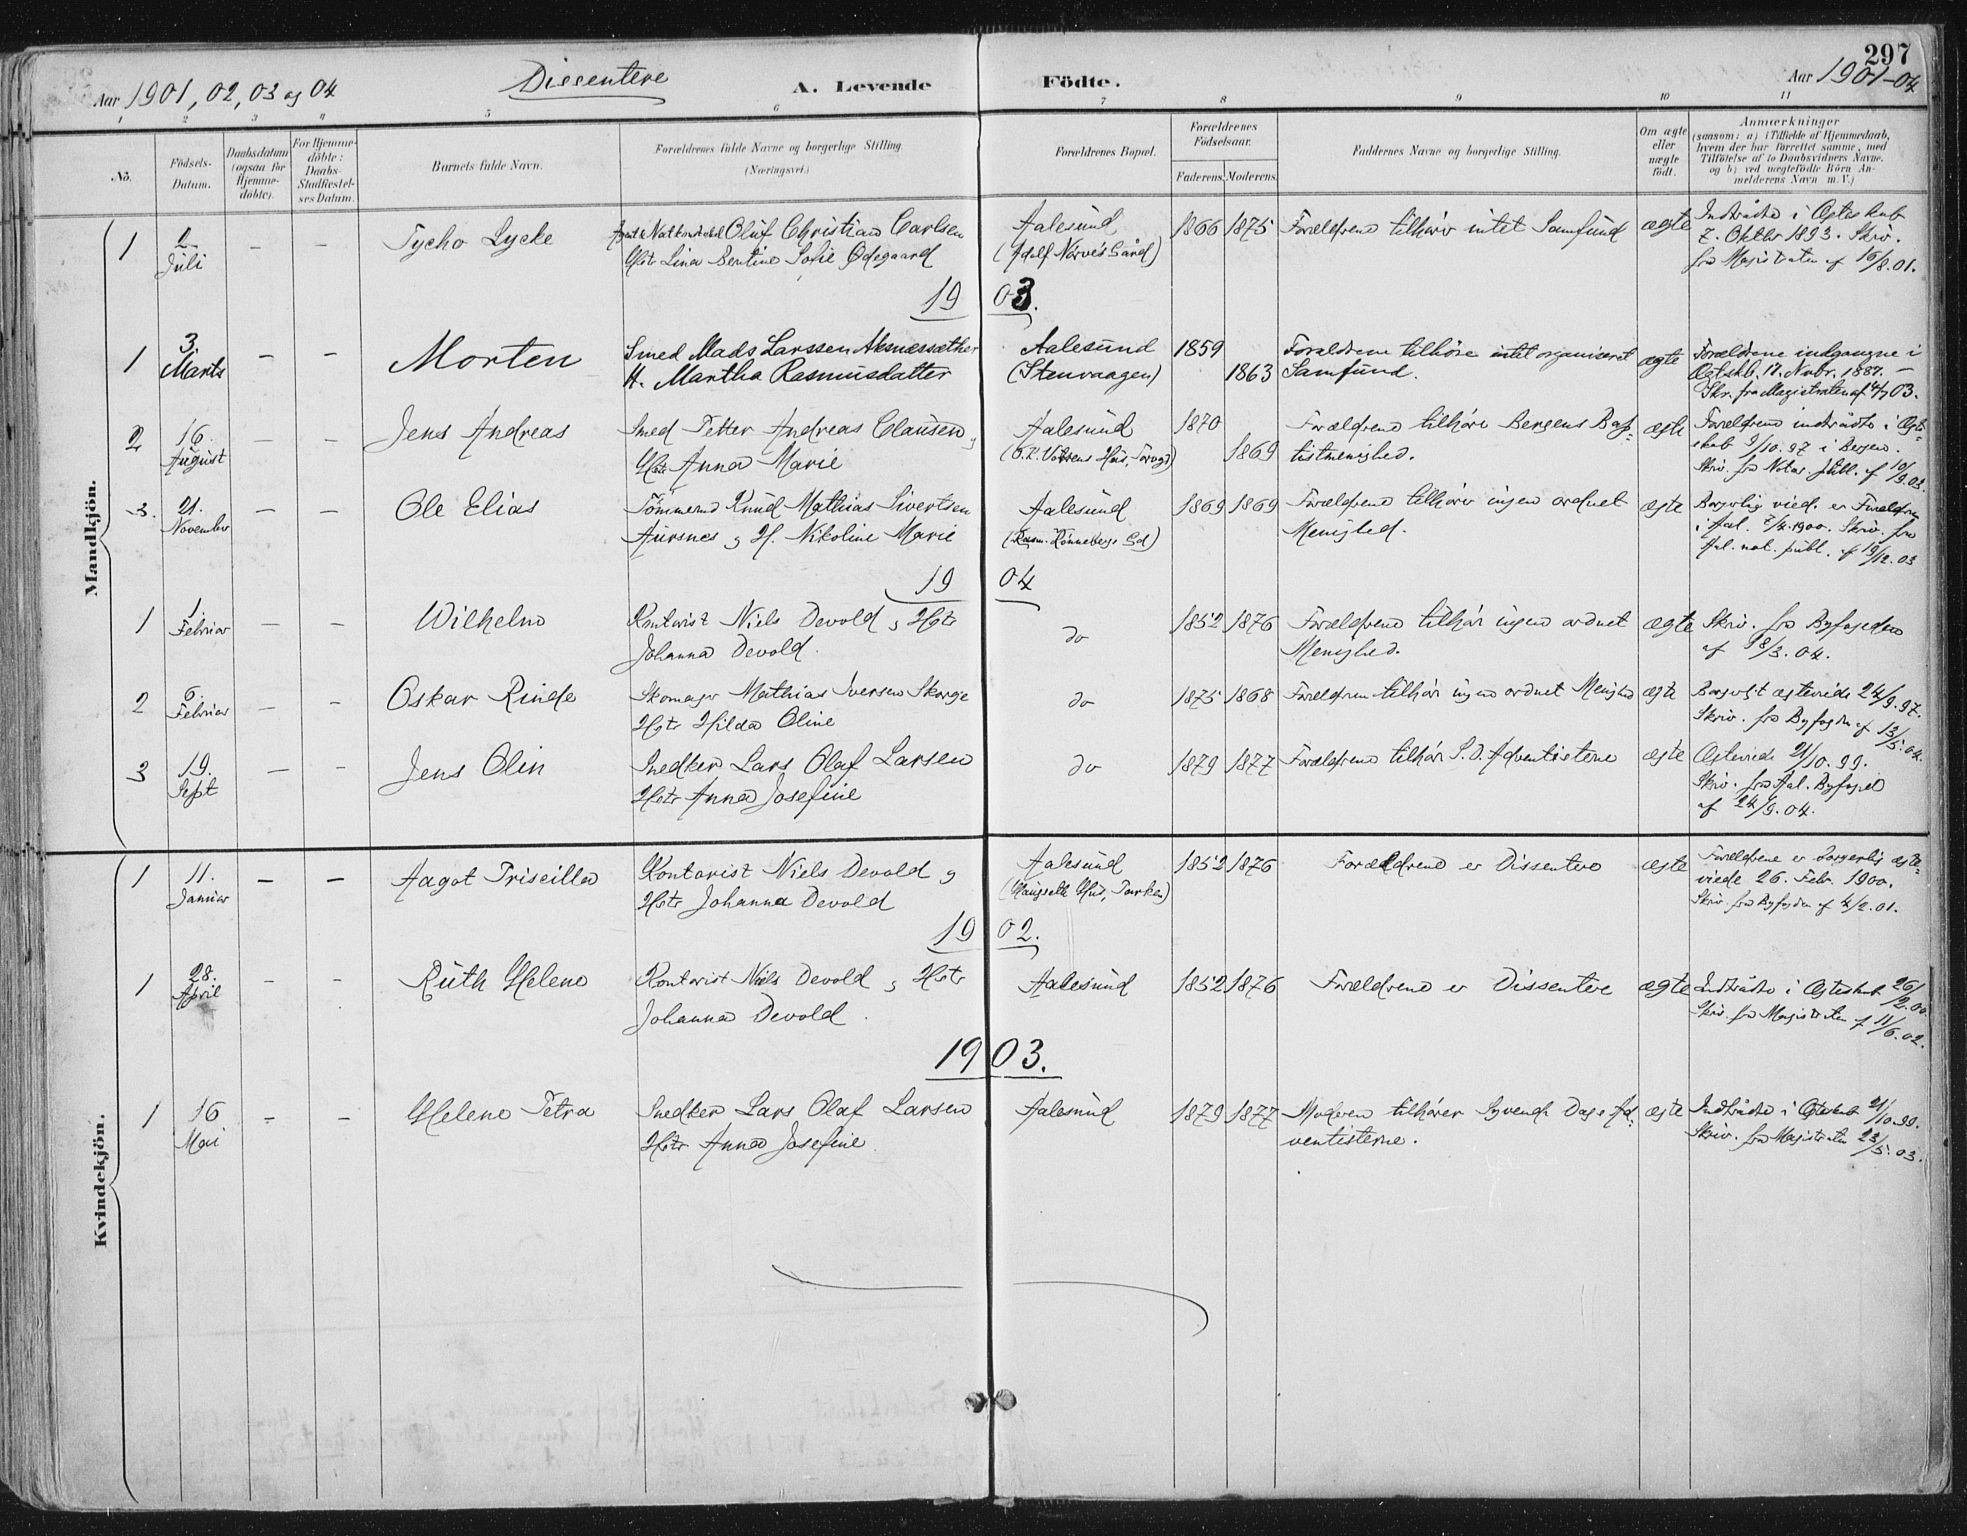 297
Aar 1901, 02, 03 og 04
Dissentere
A. Levende
Födte.
Aar 1901-04
1 2 3 4 5 6 7 8 9 10 11
No.
Födsels-
Datum.
Daabsdatum
(ogsaa for
Hjemme-
döbte).
For Hjemme-
döbte:
Daabs-
Stadfæstel-
ses Datum.
Barnets fulde Navn.
Forældrenes fulde Navne og borgerlige Stilling
(Næringsvei.)
Forældrenes Bopæl.
Forældrenes
Födselsaar.
Faderens. Moderens.
Faddernes Navne og borgerlige Stilling.
Om ægte
eller
uægte
födt.
Anmærkninger
(saasom: a) i Tilfælde af Hjemmedaab,
hvem der har forrettet samme, med
Tilföielse af to Daabsvidners Navne,
og b) ved uægtefödte Börn An-
melderens Navn m. V.)
Mandkjön.
1
2
Juli
– –
Tycho Lycke
Oluf Christian Carlsen
Hstr Lina Bentine Sofie Ödegaard
Aalesund
(Adolf Norves Gård)
1866 1875
Forældrene tilhörer intet Samfund
ægte
Indtraadte i Ægteskab
7. Oktbr 1893. Skriv.
fra Magistraten af 16/8.01.
1903.
1
3.
Marts
– –
Morten
Smed Mads Larssen Aknessæther
H. Martha Rasmusdatter
Aalesund
(Stenvaagen)
1859
1863
Forældrene tilhöre intet organiseret
Samfund.
ægte
Forældrene indgangne i
Ægtskb. 17. Nvbr. 1887. –
Skr. fra Magistraten af 4/7 03.
2
16.
August
– –
Jens Andreas
Smed Petter Andreas Clausen og
Hstr Anna Marie
Aalesund
1870
1869
Forældrene tilhöre Bergens Bap-
tistmenighed.
ægte
Forældrene indtraadte i Ægte-
skab 9/10.97 i Bergen.
Skriv. fra Notar. publ. af 10/9.03.
3.
21.
November
– –
Ole Elias
Tömmermd Knud Mathias Sivertsen
Aursnes og H. Nikoline Marie
Aalesund
(Rasm. Rönnebergs Gd)
1869 1869
Forældrene tilhörer ingen ordnet
Menighed.
ægte
Borgerlig viede er Forældrene
i Aal. 7/4.1900. Skriv. fra
Aal. not. publ. af 19/12.03
1904
1
1
Februar
– –
Wilhelm
Kontorist Niels Devold og Hstr
Johanna Devold.
do
1852 1876
Forældrene tilhör ingen ordnet
Menighed.
ægte
Skriv. fra Byfogden
af 18/3.04.
2
6.
Februar
– –
Oskar Rinde
Skomager Mathias Iversen Skorge
Hstr Hilda Oline
do
1875 1868
Forældren tilhör ingen ordnet Menighed
ægte
Borgerligt ægteviede 24/9.97.
Skriv. fra Byfogden af 13/5.04.
3
19.
Sept
– –
Jens Olin
Snedker Lars Olaf Larsen
Hstr Anna Josefine
do
1879 1877
Forældrene tilhör S.D. Adventisterne
ægte
Ægteviede 21/10.99.
Skriv. fra Aal. Byfoged
af 24/9.04.
Kvindekjön.
1
11.
Januar
– –
Aagot Priscilla
Kontorist Niels Devold og
Hstr Johanna Devold
Aalesund
1852 1876
Forældrene er Dissentere
ægte
Forældrene er borgerlig ægte-
viede 26. Febr. 1900.
Skriv. fra Byfogden af 4/2.01.
1902.
1
28.
April
– –
Ruth Helene
Kontorist Niels Devold og Hstr
Johanna Devold.
Aalesund
1852 1876
Forældrene er Dissentere
ægte
Indtraadte i Ægteskab 26/2.00.
Skriv. fra Magistraten af 11/6.02.
1903.
1
16
Mai
– –
Helene Petra
Snedker Lars Olaf Larsen
Hstr Anna Josefine
Aalesund
1879 1877
Moderen tilhörer Syvende Dags Ad-
ventisterne.
ægte
Indtraadte i Ægteskab 21/10.99.
Skriv. fra Magistraten 23/5.03.